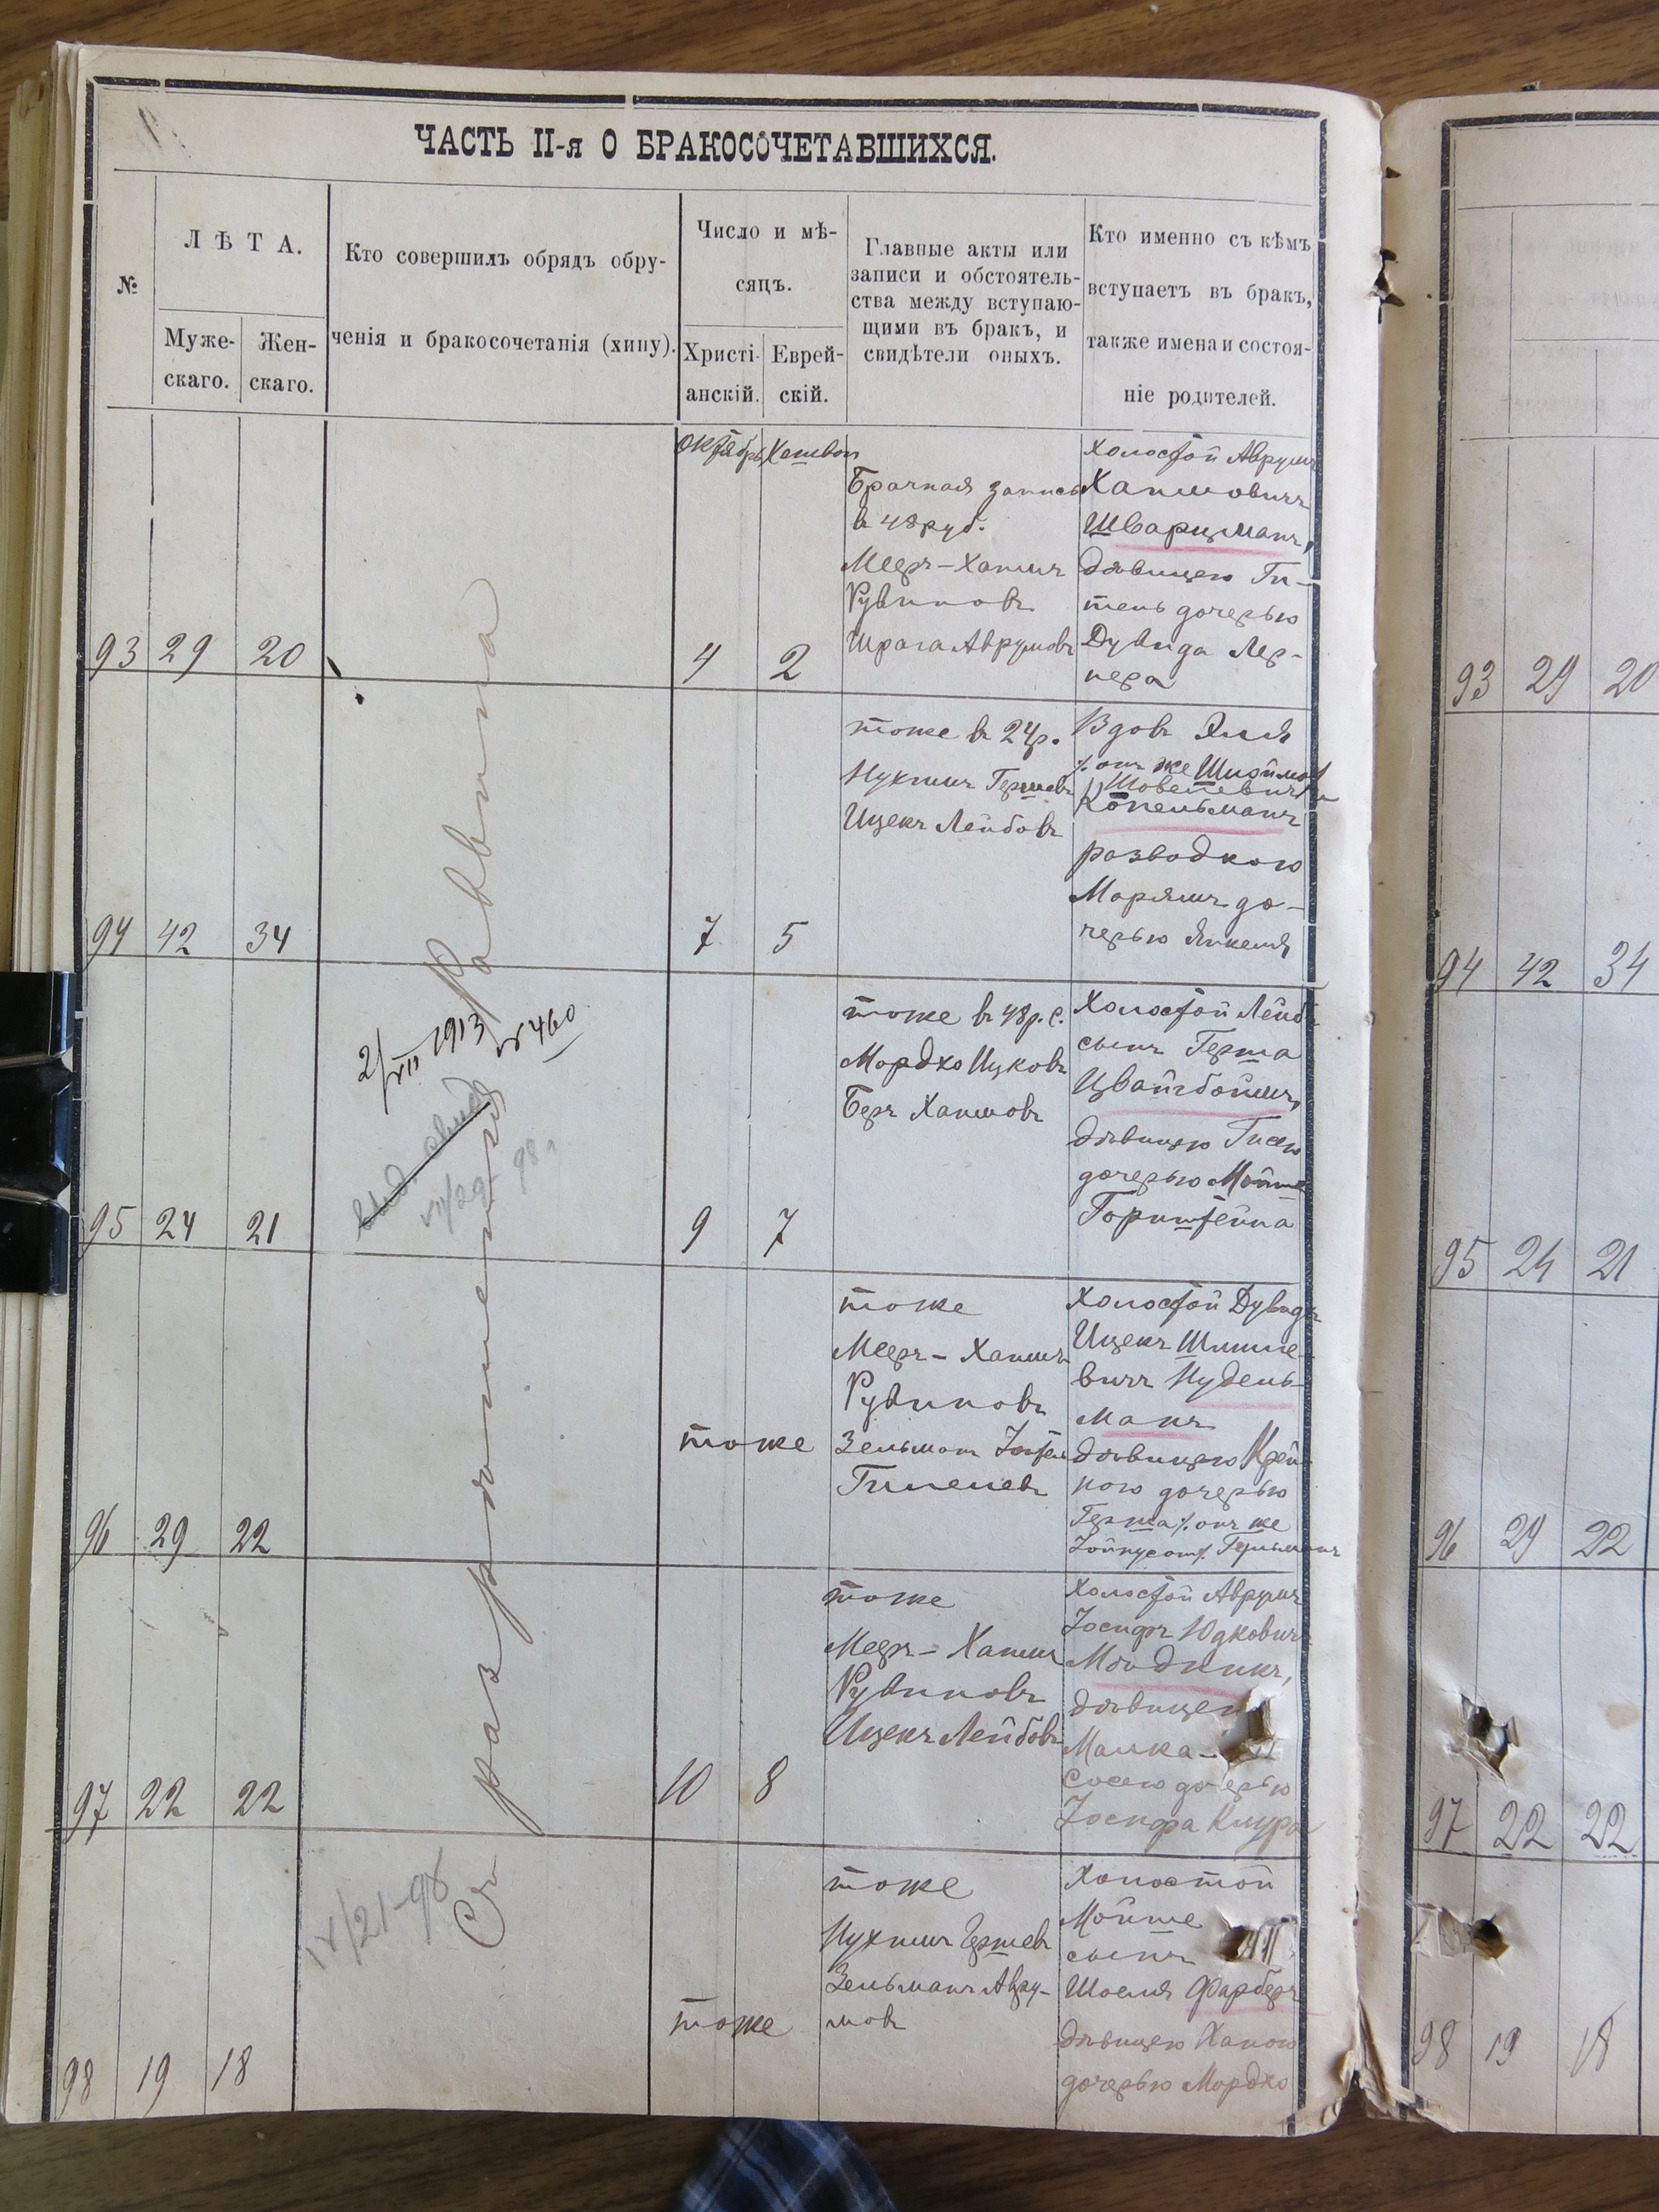 ЧАСТЬ II-я О БРАКОСОЧЕТАВШИХСЯ.
№
ЛѢТА.
Муже-
скаго.
Жен-
скаго.
Кто совершилъ обрядъ обру-
ченія и бракосочетанія (хипу).
Число и мѣ-
сяцъ.
Христі-
анскій.
Еврей-
скій.
Главные акты или
записи и обстоятель-
ства между вступаю-
щими въ бракъ, и
свидѣтели оныхъ.
Кто именно съ кѣмъ
вступаетъ въ бракъ,
также имена и состоя-
ніе родителей.
Съ разрѣшенія Раввина
93 29 20
октябрь Хешвон
4 2
Брачная запись
в 48 руб.
Меер-Хаимъ
Рувиновъ
Шрага Аврумовъ
Холостой Аврумъ
Хаимовичъ
Шварцманъ,
дѣвицею Ги-
тель дочерью
Дувида Лер-
нера
94 42 34
7 5
тоже въ 24 р.
Нухимъ Гершевъ
Ицекъ Лейбовъ
Вдовъ
онъ же
Копельманъ
разводкою
Марямъ до-
черью Янкеля
95 24 21
2/VII 1913
№ 460
VII/29 98
9 7
тоже въ 48 р. с.
Мордко Ицковъ
Беръ Хаимовъ
Холостой Лейб
сынъ Герша
Цвайгбоймъ,
дѣвицею Гисею
дочерью Мойше
Горнштейна
96 29 22
тоже
тоже
Меер-Хаимъ
Рувиновъ
Зельман
Гилелевъ
Холостой Дувидъ
Ицекъ Шмиле-
вичъ Нудель-
манъ
дѣвицею Крей-
ною дочерью
Герша онъ же
97 22 22
10 8
тоже
Меер-Хаимъ
Рувиновъ
Ицекъ Лейбовъ
Холостой Аврумъ
Іосифъ Юдковичъ
дѣвицею
Малка-
Сосею дочерью
Іосифа
98 19 18
IV/21-98
тоже
тоже
Нухимъ Гершевъ
Зельманъ Авру-
мовъ
Холостой
Мойше
сынъ
Шоеля Фарберъ
дѣвицею Ханою
дочерью Мордко
93 29 20
94 42 34
95 24 21
96 29 22
97 22 22
98 19 18